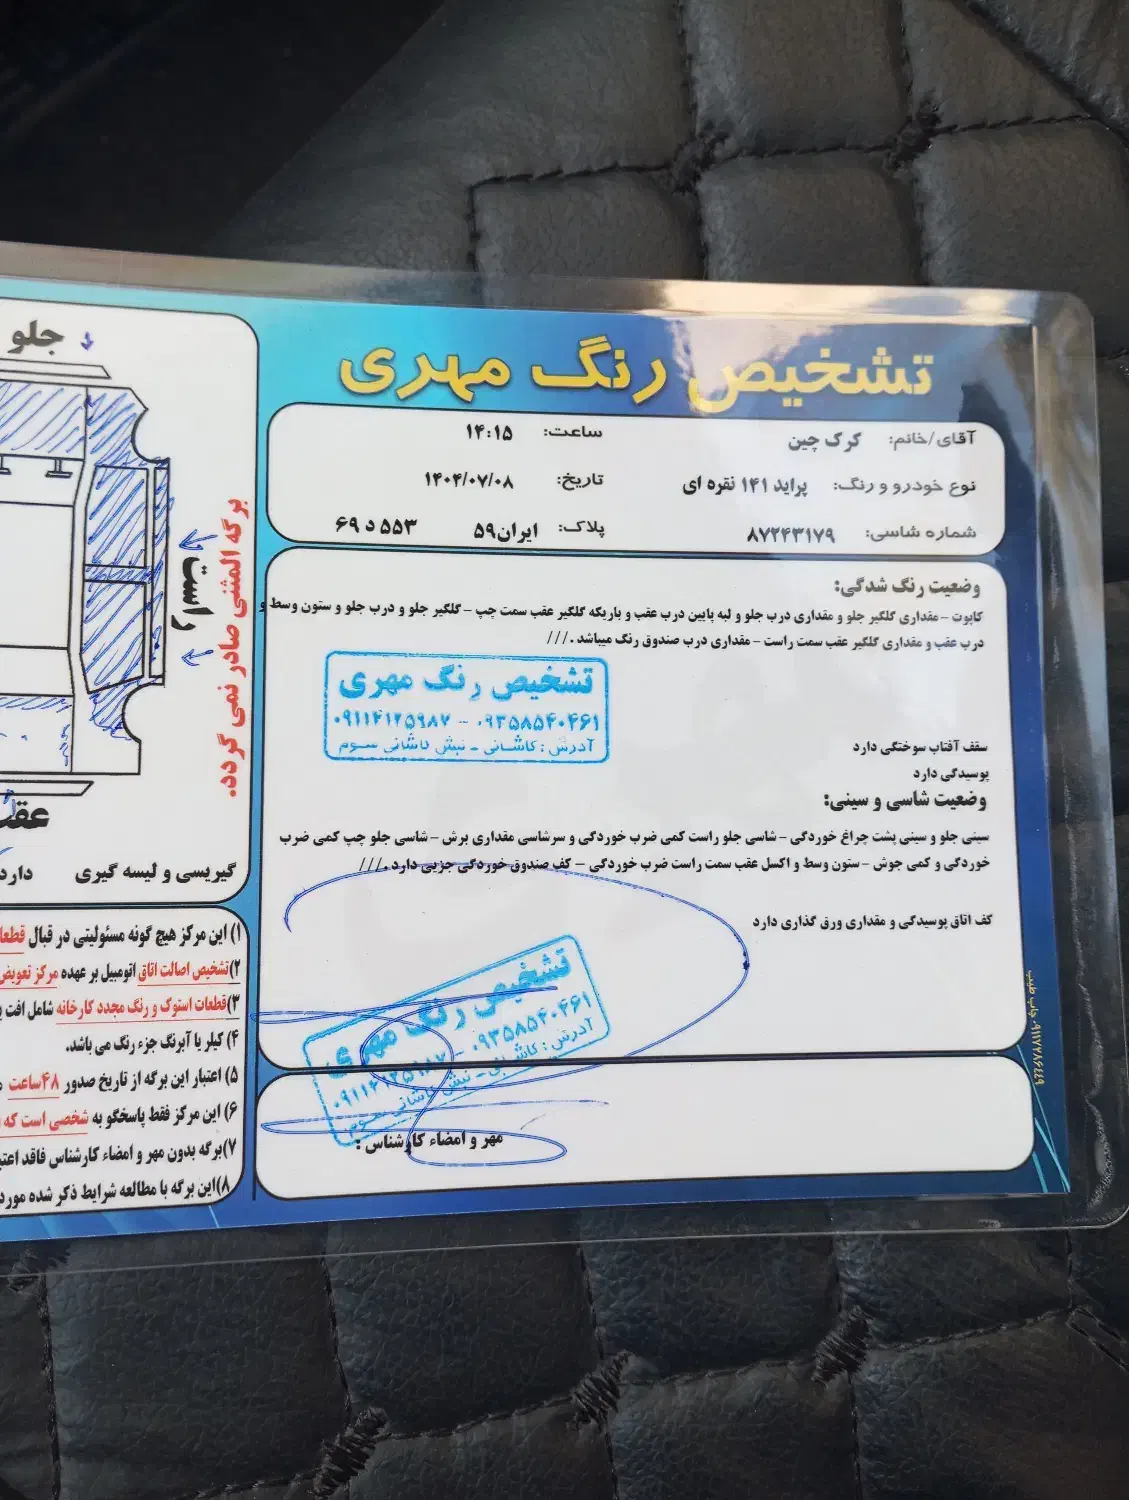 تشخیص رنگ مهری
آقای/خانم: کرک چین
ساعت: ۱۴:۱۵
نوع خودرو و رنگ: پراید ۱۴۱ نقره ای
تاریخ: ۱۴۰۴/۰۷/۰۸
شماره شاسی: ۸۷۲۴۳۱۷۹
پلاک: ایران۵۹ ۵۵۳ د ۶۹
وضعیت رنگ شدگی:
کاپوت - مقداری گلگیر جلو و مقداری درب جلو و لبه پایین درب عقب و باریکه گلگیر عقب سمت چپ - گلگیر جلو و درب جلو و ستون وسط و
درب عقب و مقداری گلگیر عقب سمت راست - مقداری درب صندوق رنگ میباشد .///
تشخیص رنگ مهری
۰۹۱۱۴۱۲۵۹۸۷ - ۰۹۳۵۸۵۴۰۴۶۱
آدرس : کاشانی - نبش کاشانی سوم
سقف آفتاب سوختگی دارد
پوسیدگی دارد
وضعیت شاسی و سینی:
سینی جلو و سینی پشت چراغ خوردگی - شاسی جلو راست کمی ضرب خوردگی و سرشاسی مقداری برش - شاسی جلو چپ کمی ضرب
خوردگی و کمی جوش - ستون وسط و اکسل عقب سمت راست ضرب خوردگی - کف صندوق خوردگی جزیی دارد .///
کف اتاق پوسیدگی و مقداری ورق گذاری دارد
تشخیص رنگ مهری
۰۹۱۱۴۱۲۵۹۸۷ - ۰۹۳۵۸۵۴۰۴۶۱
آدرس : کاشانی - نبش کاشانی سوم
مهر و امضاء کارشناس :
چاپ طبیب ۰۹۱۱۷۷۸۶۴۴۹
جلو
راست
برگه المثنی صادر نمی گردد.
عقب
گیریسی و لیسه گیری دارد
۱) این مرکز هیچ گونه مسئولیتی در قبال
۲)تشخیص اصالت اتاق اتومبیل بر عهده مرکز تعویض
۳)قطعات استوک و رنگ مجدد کارخانه شامل افت
۴) کیلر یا آبرنگ جزء رنگ می باشد.
۵) اعتبار این برگه از تاریخ صدور ۴۸ساعت
۶) این مرکز فقط پاسخگو به شخصی است که
۷)برگه بدون مهر و امضاء کارشناس فاقد
۸)این برگه با مطالعه شرایط ذکر شده مورد